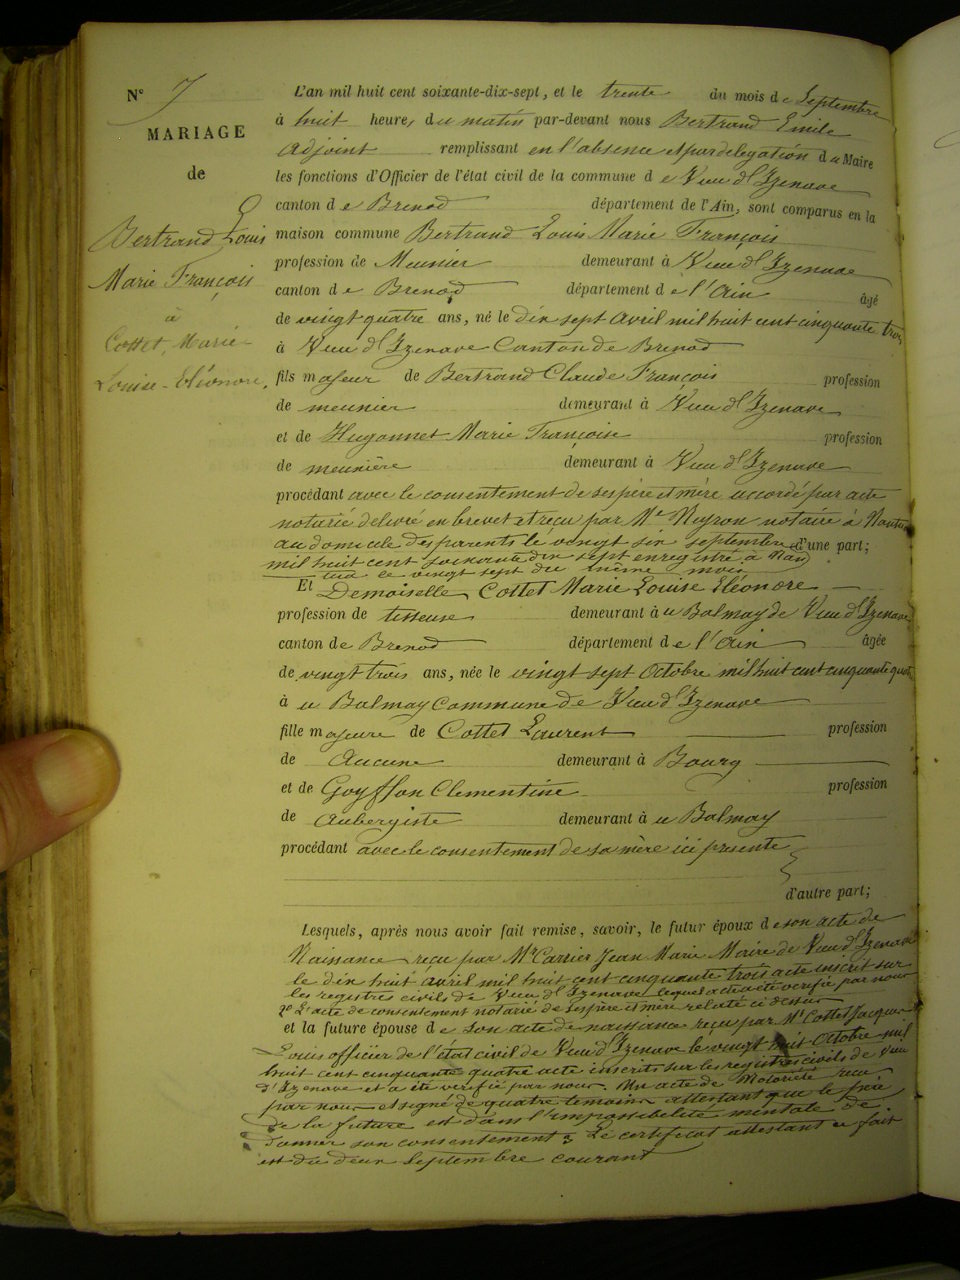 N° 7
MARIAGE
de
Bertrand Louis
Marie François
à
Cottet, Marie-
Louise-Eléonore,
L'an mil huit cent soixante-dix-sept, et le trente du mois de Septembre
à huit heures du matin par-devant nous Bertrand Emile
Adjoint remplissant en l'absence et par delegation du Maire
les fonctions d'Officier de l'état civil de la commune de Vieu d'Izenave
canton de Brenod département de l'Ain, sont comparus en la
maison commune Bertrand Louis Marie François
profession de Meunier demeurant à Vieu d'Izenave
canton de Brenod département de l'Ain âgé
de vingt quatre ans, né le dix sept Avril mil huit cent cinquante trois
à Vieu d'Izenave Canton de Brenod
fils majeur de Bertrand Claude François profession
de meunier demeurant à Vieu d'Izenave
et de Hugonnet Marie Françoise profession
de meunière demeurant à Vieu d'Izenave
procédant avec le consentement de ses père et mère accordé par acte
notarié délivré en brevet et reçu par Me Neyron notaire à Nantua
au domicile des parents le vingt six septembre d'une part;
mil huit cent soixante dix sept enregistré à Nan
tua le vingt sept du même mois
Et Demoiselle Cottet Marie Louise Eléonore
profession de tisseuse demeurant à u Balmay de Vieu d'Izenave
canton de Brenod département de l'Ain âgée
de vingt trois ans, née le vingt sept Octobre mil huit cent cinquante quatre
à u Balmay Commune de Vieu d'Izenave
fille majeure de Cottet Laurent profession
de Aucune demeurant à Bourg
et de Goyffon Clementine profession
de Aubergiste demeurant à u Balmay
procédant avec le consentement de sa mère ici présente
d'autre part;
Lesquels, après nous avoir fait remise, savoir, le futur époux de son acte de
Naissance reçu par Mr Carrier Jean Marie Maire de Vieu d'Izenave
le dix huit avril mil huit cent cinquante trois acte inscrit sur
les registres civils de Vieu d'Izenave lequel acte a été verifié par nous
2° L'acte de consentement notarié de ses père et mère relaté ci dessus
et la future épouse de son acte de naissance reçu par Mr Cottet Jacques
Louis officier de l'état civil de Vieu d'Izenave le vingt huit Octobre mil
huit cent cinquante quatre acte inscrits sur les registres civils de Vieu
d'Izenave et a été verifié par nous. Un acte de Notoriété reçu
par nous et signé de quatre temoins attestant que le père
de la future est dans l'impossibilité mentale de
donner son consentement; Le certificat attestant ce fait
est du deux Septembre courant